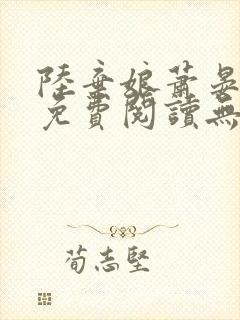 陸棄娘蕭晏
免費閱讀無
荀志堅